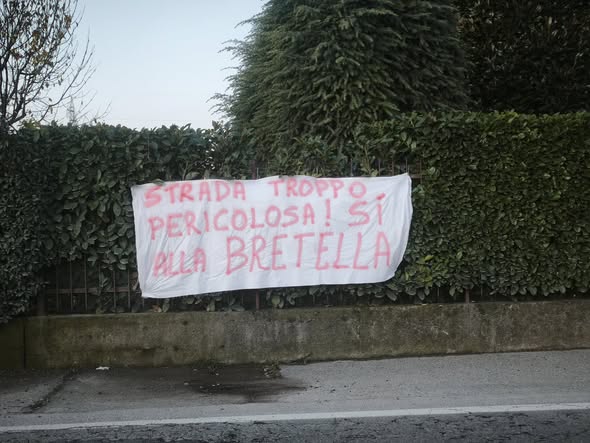 STRADA TROPPO
PERICOLOSA! SI
ALLA BRETELLA